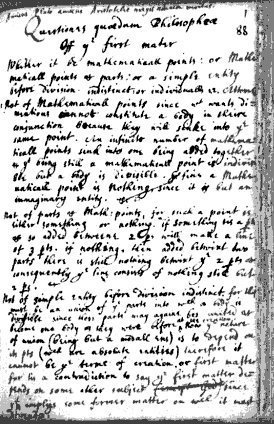 Amicus Plato amicus Aristoteles magis amica veritas
88
Questiones quædam Philosophcæ
Off yᵉ first mater
Whither it be mathematicall points: or Mathe-
maticall points & parts: or a simple entity
before division indistinct: or individualls
Not of Mathematicall points since wᵗ wants di-
mentions cannot constitute a body in theire
conjunction because they will sinke into yᵉ
same point. An infinite number of mathema-
ticall points sink into one being added together
& yᵗ being still a mathematicall point is indivisi-
ble but a body is divisible. since a Mathe-
maticall point is Nothing since it is but an
immaginary entity.
Not of parts & Math: points, for such a point is
either something or nothing. if something tis a pt
& so added betwixt 2 will make a line
of 3 pts. if nothing, yn added betwixt two
parts there is still nothing betwixt yᵉ 2 pts &
consequently yᵉ line consists of nothing still but
2 pts.
Not of simple entity before division indistinct, for this
must be an union of yᵉ parts into wᶜʰ a body is
divisible since those parts may againe bee united &
become one body as they were before
of union (being but a modall ens) is to depend on
its pts (wᶜʰ are absolute entitys) therefore it
cannot be yᵉ terme of creation or first matter
for tis a contradiction to say yᵉ first matter de-
pends on some other subject since
yᵗ implys some former matter on wᶜʰ it must